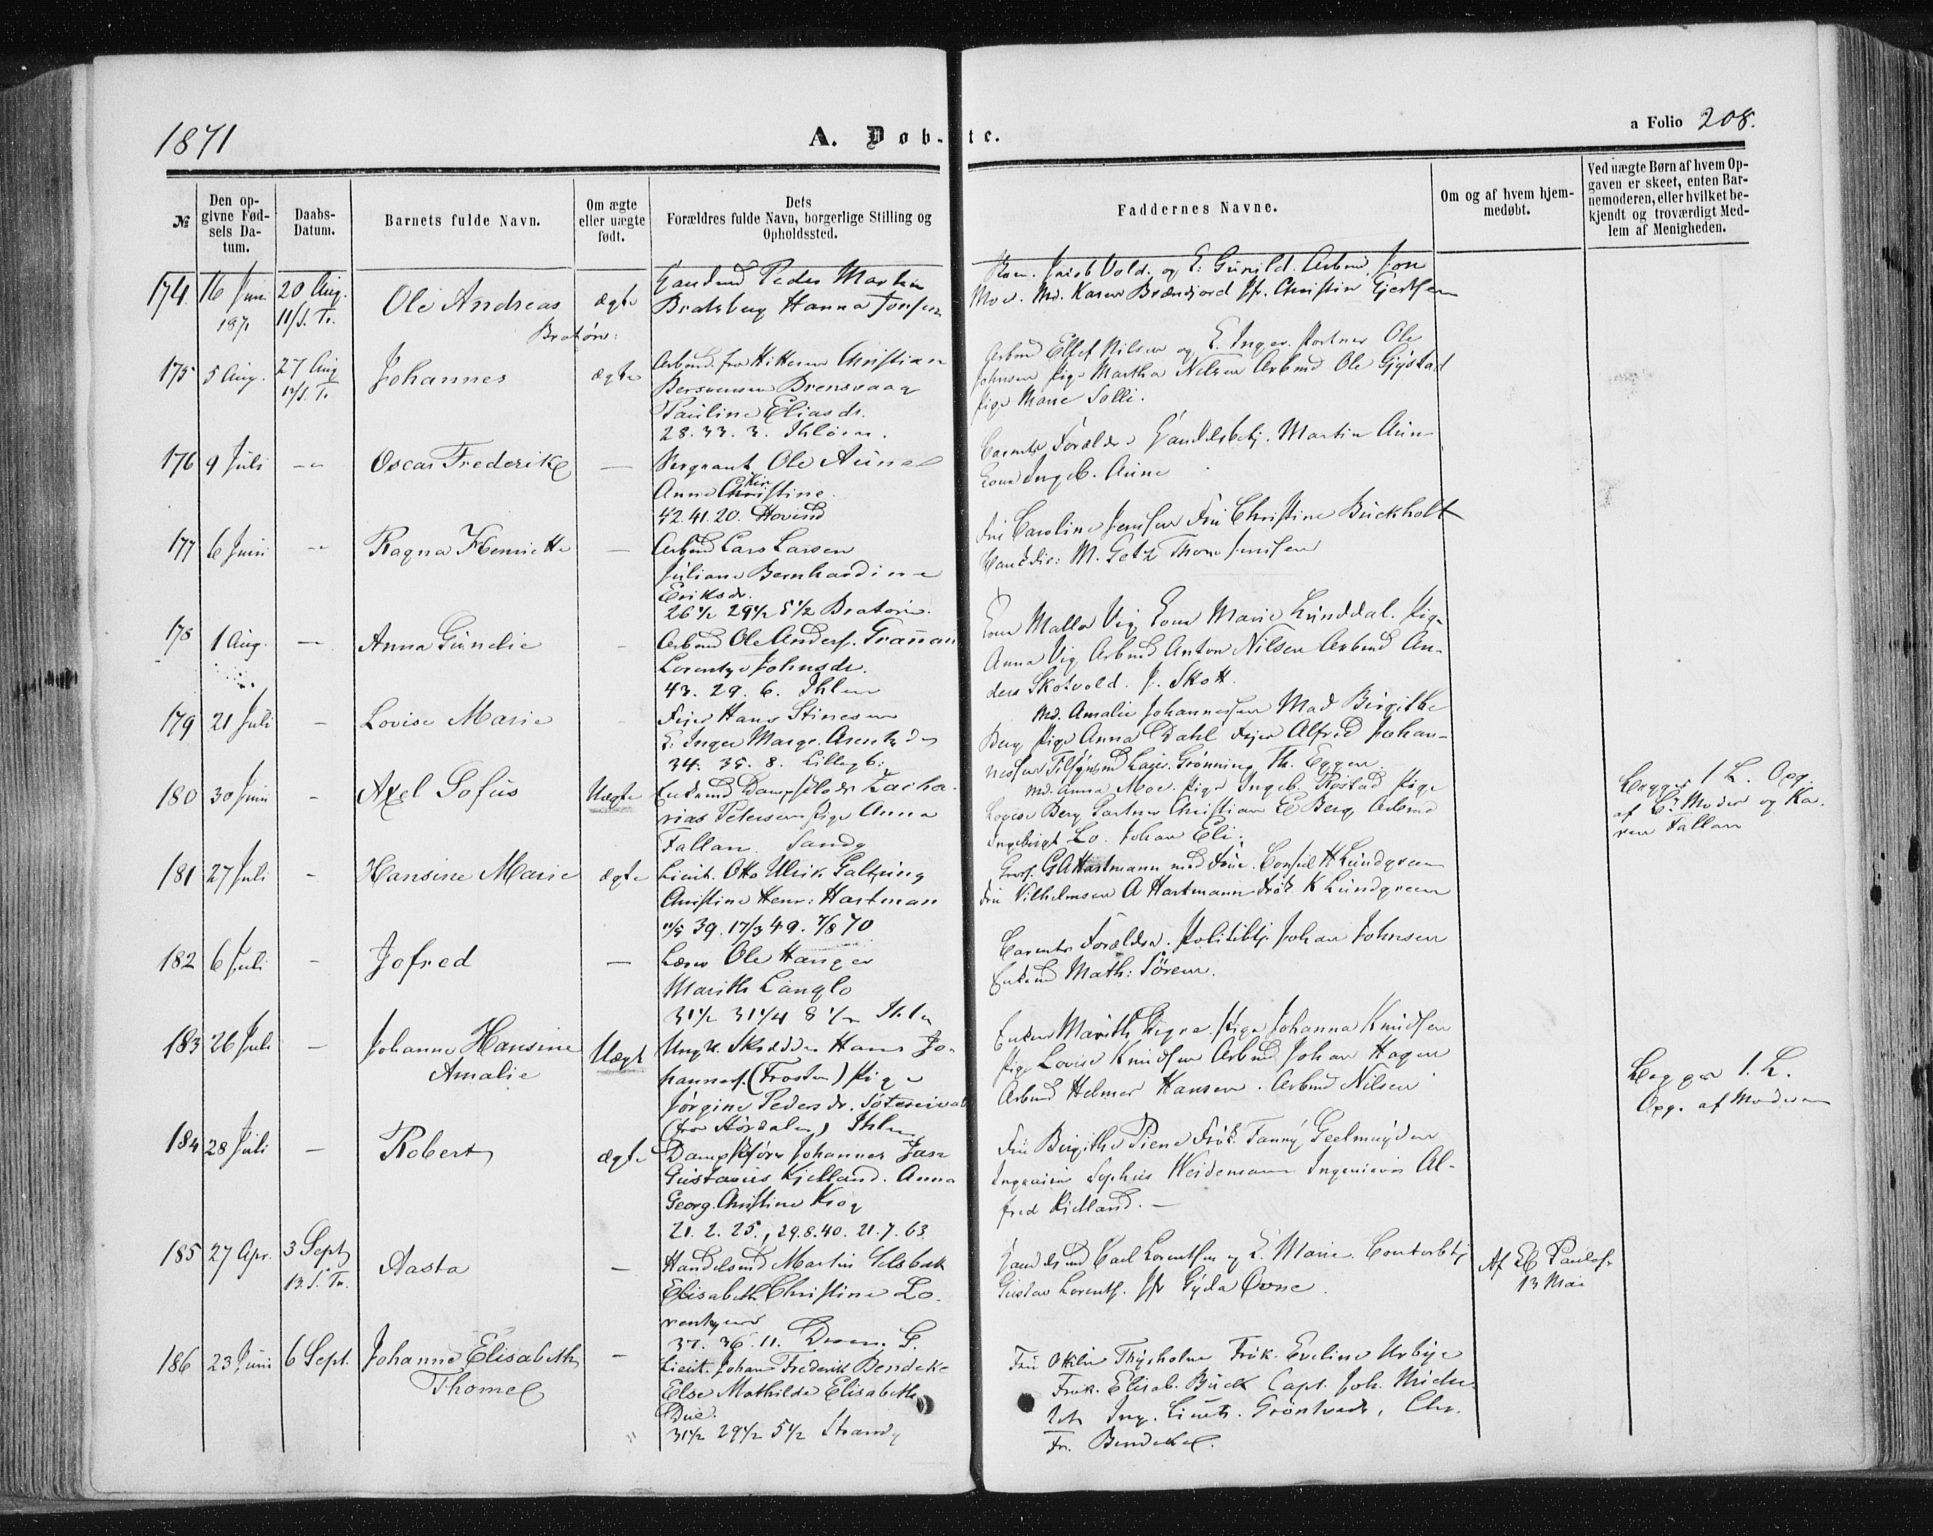 1871
A. Døb- te.
a Folio 208.
№
Den op-
givne Fød-
sels Da-
tum.
Daabs-
Datum.
Barnets fulde Navn.
Om ægte
eller uægte
født.
Dets
Forældres fulde Navn, borgerlige Stilling og
Opholdssted.
Faddernes Navne.
Om og af hvem hjem-
medøbt.
Ved uægte Børn af hvem Op-
gaven er skeet, enten Bar-
nemoderen, eller hvilket be-
kjendt og troværdigt Med-
lem af Menigheden.
174 16 Juni 1871 20 Aug. 11/S. Tr. Ole Andreas ægte
Peder Martin
Bratsberg Hanna Jonsen
Bratøre:
Jacob Vold og E. Gunild. Arbmd. Jon
Moe. Md. Karen Brændjord Jfr. Christin Gjertsen
175 5 Aug. 27 Aug 12/S. Tr. Johannes ægte
Arbmd. fra Hitteren Christian
Brensvaag
Pauline Eliasdr.
28. 33. 3. Ihløen.
Arbmd Ellef Nilsen og E. Inger. Portner Ole
Johnsen Pige Martha Nilsen Arbmd Ole Gjystad
Pige Marie Solli.
176 9 Juli -"- Oscar Frederik —
Sergeant Ole Aune
Anna Christine
42. 41. 20. Hovind
Barnets Forældre Handelsbetj. Martin Aun-
Kone Ingeb. Aune
177 6 Juni -"- Ragna Henriette —
Arbmd Lars Larsen
Juliane Bernhardine
Eriksdr.
26 1/2 29 1/2 5 1/2 Bratøre.
Fru Caroline Jensen Fru Christine Buckholt
M. Getz Thom Jensen
178 1 Aug. — Anna Gundie -
Arbmd Ole Anders. Granan
Lorentze Johnsdr.
43. 29. 6. Ihlen
Kone Malla Vig Kone Marie Lunddal. Pige
Anna Vig Arbmd Anton Nilsen Arbmd An-
ders Skotvold. J. Skott.
179 21 Juli - Lovise Marie
Feier Hans Stinesen
E. Inger Margr. Arentzdr
34. 35. 8. Lillegb:
Md. Amalie Johannessen Mad Birgithe
Berg Pige Anna Dahl Feier Alfred Johan-
nessen Grønning Th. Eggen
180 30 Juni - Axel Sofus Uægte
Enkemd Zacha-
rias Petersen Pige Anna
Fallan Sandg
Md. Anna Moe. Pige Ingeb. Rostad Pige
Lovise Berg Gartner Christian E Berg Arbmd
Ingebrigt Lo. Johan Eli.
Begges 1 L. Opg.
af B. Moder og Ka-
ren Fallan
181 27 Juli - Hansine Marie ægte
Lieut. Otto Ulrik
Christine Henr: Hartman
11/5 39. 17/3 49. 7/8 70
Gross. GA Hartmann med Frue. Consul H Lundgreen
Fru Vilhelmsen A Hartmann Frøk K Lundgreen
182 6 Juli - Jofred —
Lærer Ole Hanger
Marith Langlo
31 1/2 31 1/4 8 1/2 Ihlen
Barnets Forældre. Politibtj. Johan Johnsen
Enkemd Math: Sørem.
183 26 Juli - Johanne Hansine
Amalie Uægt
Ungk. Skrædder Hans Jo-
hannes. (Frosten) Pige
Jørgine Pedersdr.
Ihlen
Enken Marith Pige Johanna Knudsen
Pige Lovise Knudsen Arbmd Johan Hagen
Arbmd Helmer Hansen. Arbmd Nilsen
Begges 1. L.
Opg. af Moderen
184 28 Juli - Robert ægte
Dampskfører Johannes Jase
Gustavus Kjelland. Anna
Georg. Christine Krog
21. 2. 25., 29.8.40. 21.7.63.
Fru Birgithe Piene Frøk. Fanny Geelmuyden
Ingeniør Sophus Weidemann Ingeniør Al-
fred Kielland. —
185 27 Apr. 3 Sept 13. S. Tr. Aasta —
Handelsmd Martin Selsbak
Elisabeth Christine Lo-
rentzen
37. 36. 11.
Handelsmd Carl Lorentsen og E. Marie. Contorbtj
Gustav Lorents. Jfr Gyda Owne.
Af Paulsen
13 Mai
186 23 Juni 6 Sept. Johanne Elisabeth
Thomel —
Lieut. Johan Frederik Bendeke
Else Mathilde Elisabeth
Due.
31 1/2 29 1/2 5 1/2 Strandg
Fru Ottilie Thysholm Frøk. Eveline Urbye
Frøk. Elisab. Buck Capt. Joh.
Ing. Lieut. Grøntvedt, Chr.
Fr. Bendeke.